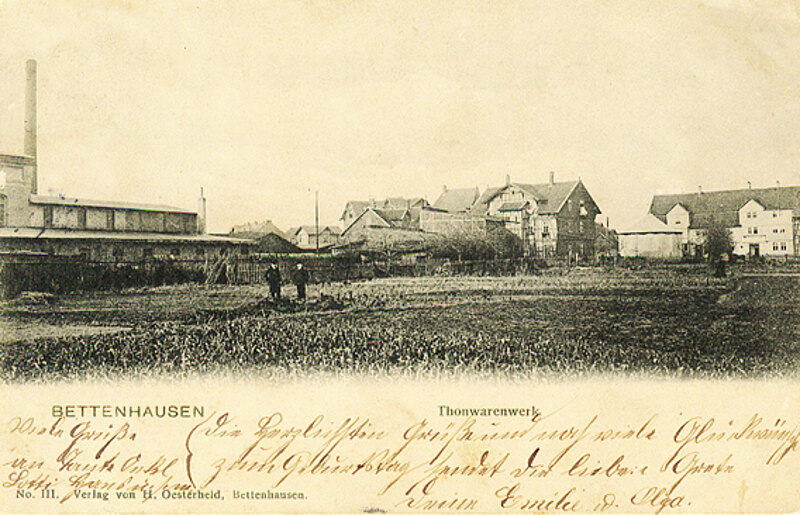 BETTENHAUSEN
Thonwarenwerk.
Viele Grüße
an Tante Onkel
Lotti
Die herzlichsten Grüße und noch viele Glückwünsche
zum Geburtstag sendet dir liebe Grete
Deine Emilie u. Olga.
No. III. Verlag von H. Oesterheld, Bettenhausen.